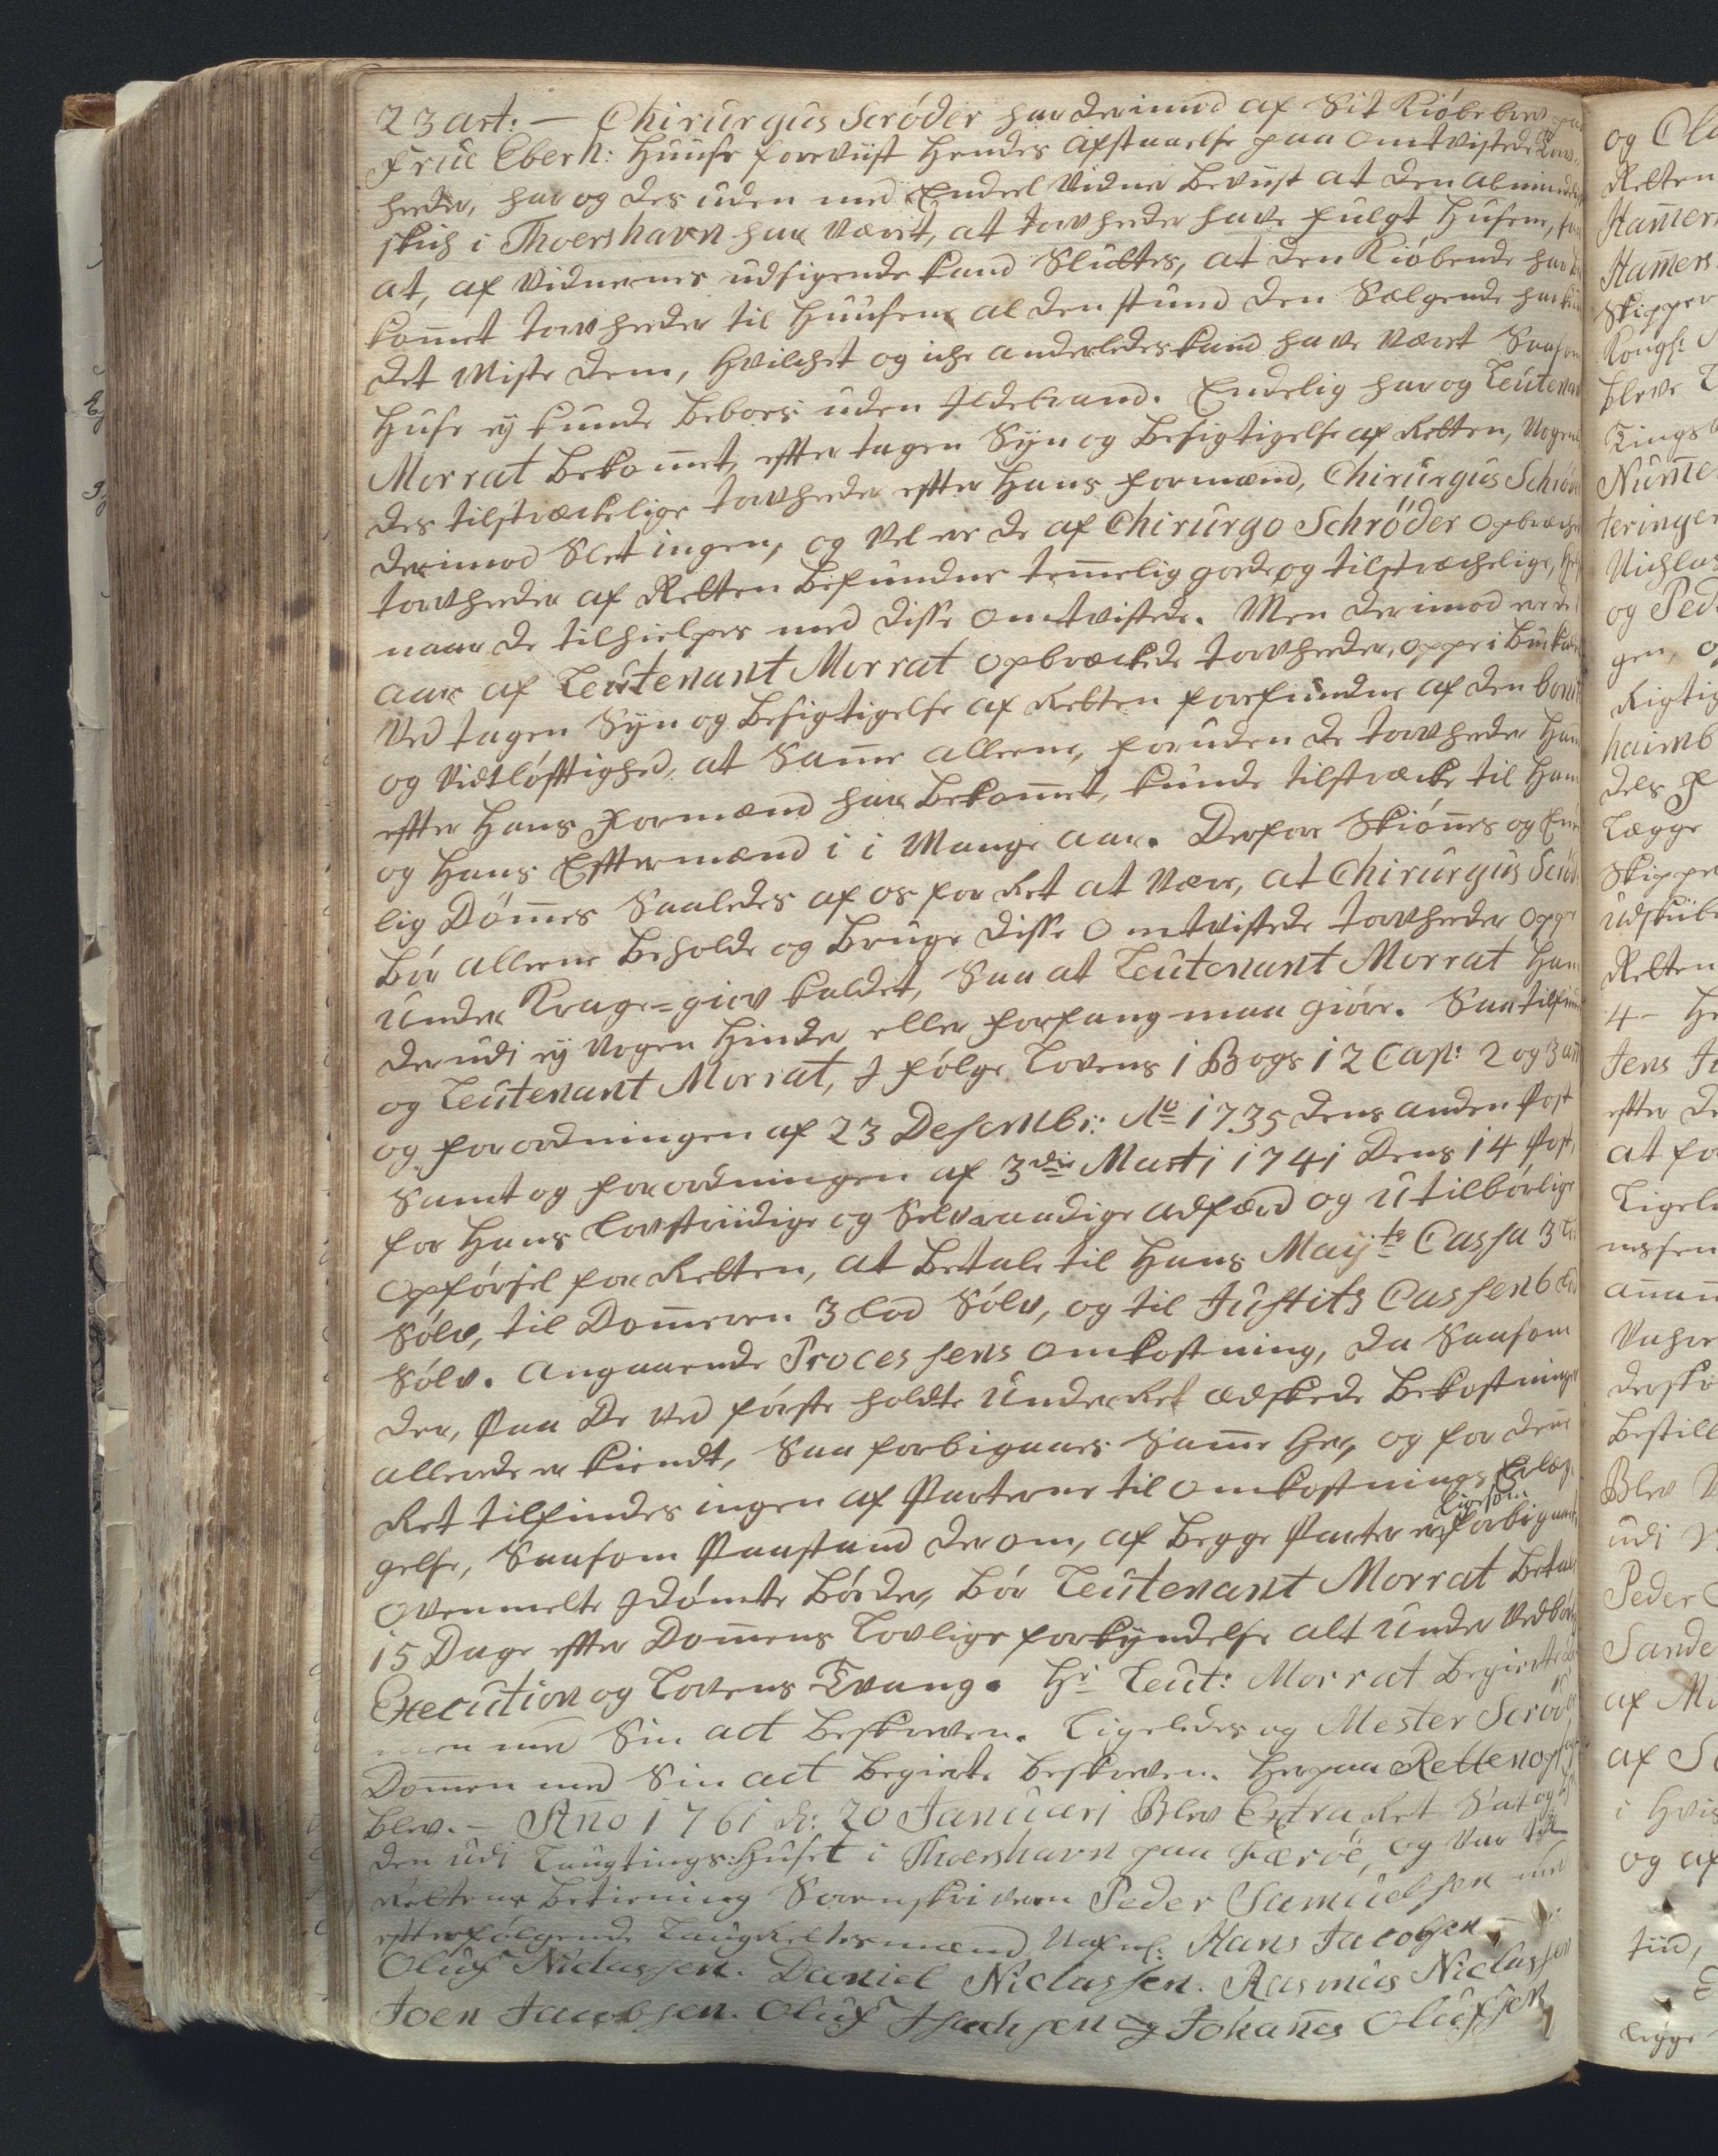 23 art: – Chirurgus Scröder har derimod af Sit Kiöbebrev paa
Frue Eberh: Huuse foreviist Hendes Afstaaelse paa omtvistede Torv-
heeder, har og des uden med Endeel Vidner beviist at den almindel
skich i Thorshavn har Været, at torvheeder have fulgt Husene, saa
at, af Vidnernes udsigende kand Sluttes, at den Kiöbende har be
kom̅et torvheeder til Huusene al den stund den Sælgende har kun
det Miste dem, Hvilchet og iche anderledes kand have Været Saasom
Huse ey kunde beboes uden Ildebrand. Endelig har og Leutenant
Morrat bekom̅et, efter tagen Syn og besigtigelse af Retten, Nogen
des tilstreckelige torvheeder efter Hans formænd, Chirurgus Schröder
derimod Slet ingen, og Vel er de af Chirurgo Schröder opbrechede
torvheeder af Retten befundne tem̅elig gode og tilstrechelige, helst
naar de tilhielpes med disse omtvistede. Men derimod er de
aar af Leutenant Morrat opbreckede torvheeder, oppe i
Ved tagen Syn og besigtigelse af Retten forefundne af den bonit
og Vidtløftighed, at Sam̅e alleene, foruden de torvheeder Han
efter Hans Formænd har bekom̅et, kunde tilstrecke til Ham
og Hans Eftermænd i i Mange aar. Derfor Skiön̅es og End
lig Döm̅es Saaledes af os for Ret at Være, at Chirurgus Scröd
bör alleene beholde og bruge disse omtvistede torvheeder oppe
under Krage=giov kaldet, Saa at Leutenant Morrat Ham
derudi ey Nogen Hinder eller forfang maa giöre. Saa tilfind
og Leutenant Morrat, I fölge Lovens 1 Bogs 12 Cap: 2 og 3 art
og forordningen af 23 Desembr: Ao 1735 dens anden Post
Samt og forordningen af 3die Marti 1741 dens 14 Post,
for Hans Lovstriidige og Selvraadige adfærd og utilbörlige
opförsel for Retten, at betale til Hans Mayts Cassa 3 Lod
Sölv, til Dom̅eren 3 Lod Sölv, og til Justits Cassen 6 Lod
Sölv. Angaaende Processens omkostning, da Saasom
der, Paa de ved förste holdte Under Ret ædskede bekostninger
allerede er kiendt, Saa forbigaaes Sam̅e Her, og for den̅e
Ret tilfindes ingen af Parterne til omkostnings Erlæg-
gelse, Saasom Paastand derom, af begge Parter er forbigaaet
ligesom
ovenmelte Idömte böder, bör Leutenant Morrat betale
15 Dage efter Dom̅ens Lovlige forkyndelse alt under Vedbörlig
Execution og Lovens Tvang. Hr Leut: Morrat begierte Dom̅
men med Sin act beskreven. Ligeledes og Mester Scröder
Dom̅en med Sin act begierte beskreven. Herpaa Retten opsagt
blev. – An̅o 1761 d: 20 Januari Blev Extra Ret Sat og hol
den udi Laugtings-Huset i Thorshavn paa Færöe, og Var til
Rettens betiening Sorenskriveren Peder Samuelsen med
efterfölgende Laugrettesmænd Nafnl: Hans Jacobsen –
Oluf Niclassen. Daniel Niclassen. Rasmus Niclassen
Joen Jacobsen. Oluf Isachsen og Johan̅es Olufsen
og
Retten
Ham̅ers
Skipper
Kongl:
bleve
Tings
teringer
Nichlas
og Ped
gen,
Rigtig
dels
Lægge
Skipper
Retten
4 –
Jens
efter de
at for
Ligele
Bestill
Blev
udi
Peder
Sande
af
af
i Hvis
og af
tiid,